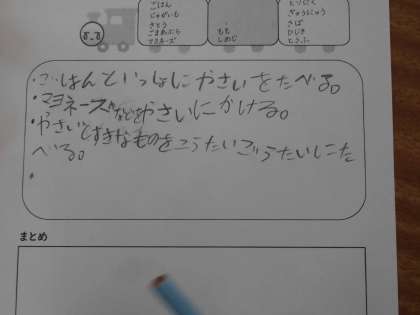 ごはん
じゃがいも
さとう
ごまあぶら
マヨネーズ
もも
しめじ
とりにく
ぎゅうにゅう
さば
ひじき
とうふ
・ごはんといっしょにやさいをたべる。
・マヨネーズなどをやさいにかける。
・やさいとすきなものをこうたいごうたいにた
べる。
・
まとめ